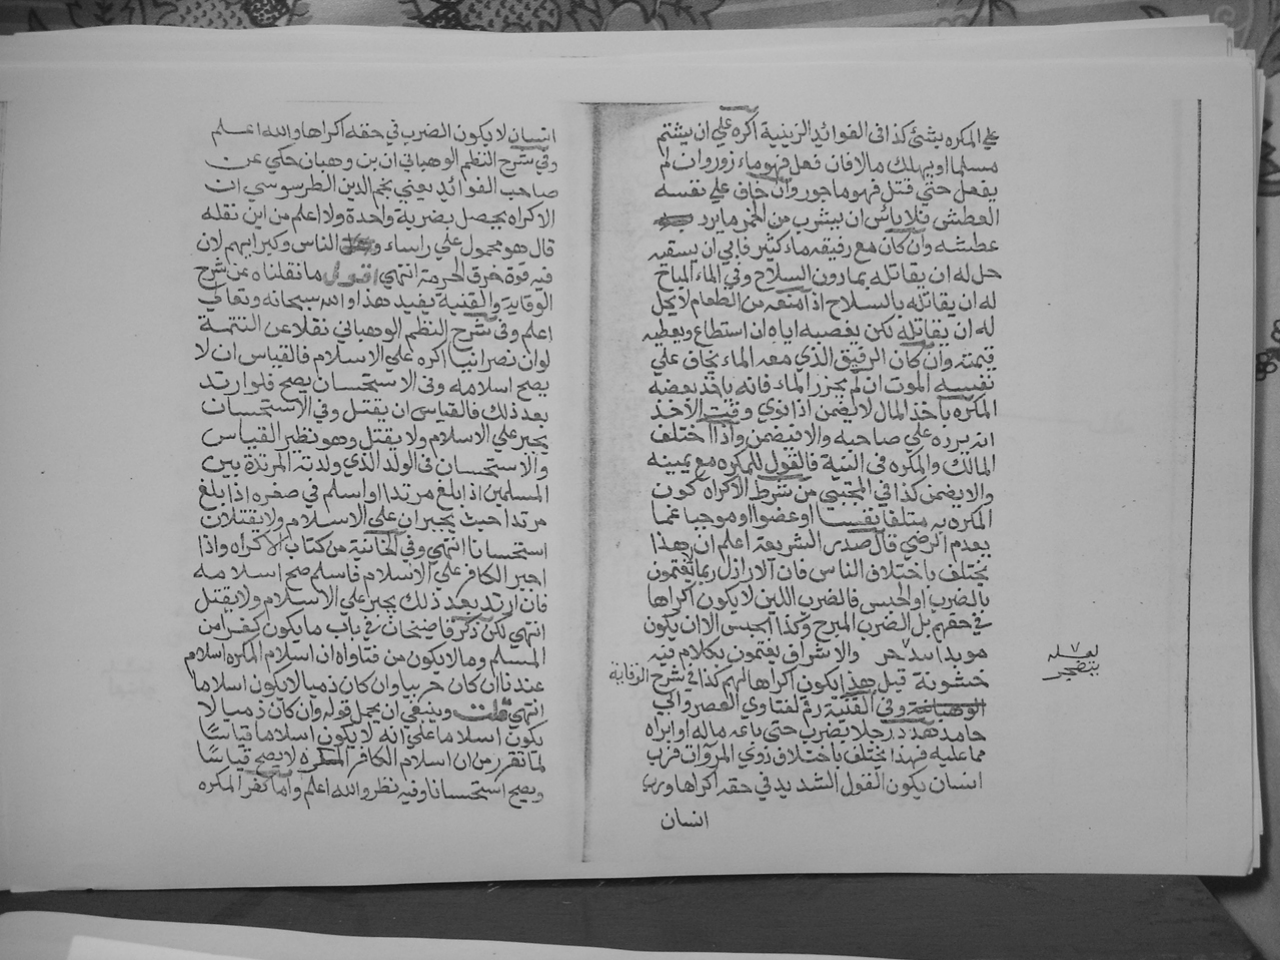 علي المكره بشئ كذا في الفوائد الزينية اكره علي ان يشتم
مسلما او يهلك مالا فان فعل فهو ماء زور وان لم
يفعل حتي قتل فهو ماجور وان خاف علي نفسه
العطش فلا باس ان يشرب من الخمر ما يرد به
عطشه وان كان مع رفيقه ماء كثير فابي ان يسقيه
حل له ان يقاتله بما دون السلاح وفي الماء المباح
له ان يقاتله بالسلاح اذا منعه من الطعام لا يحل
له ان يقاتله لكن يغصبه اياه ان استطاع ويعطيه
قيمته وان كان الرفيق الذي معه الماء يخاف علي
نفسه الموت ان لم يحرز الماء فانه ياخذ بعضه
المكره باخذ المال لا يضمن اذا نوي وقت الاخذ
انه يرده علي صاحبه والا فيضمن واذا اختلف
المالك والمكره في النية فالقول للمكره مع يمينه
والا يضمن كذا في المجتبي من شرط الاكراه كون
المكره به متلفا نفسا او عضوا او موجبا غما
يعدم الرضي قال صدر الشريعة اعلم ان هذا
يختلف باختلاف الناس فان الاراذل ربما لا يغتمون
بالضرب او الحبس فالضرب اللين لا يكون اكراها
في حقهم بل الضرب المبرح وكذا الحبس الا ان يكون
موبدا والاشراف يغتمون بكلام فيه
لعله
يتضجر
خشونة قبل هذا يكون اكراها لهم كذا في شرح الوقاية
وفي القنية رقم لفتاوي العصر وابي
حامد هدد رجلا بضرب حتي باعه ماله او ابراه
مما عليه فهذا يختلف باختلاف ذوي المروآت فرب
انسان يكون القول الشديد في حقه اكراها ورب
انسان
انسان لا يكون الضرب في حقه اكراها والله اعلم
وفي شرح النظم الوهباني ان بن وهبان حكي عن
صاحب الفوائد يعني نجم الدين الطرسوسي ان
الاكراه يحصل بضربة واحدة ولا اعلم من اين نقله
قال هو محمول علي راساء الناس وكبرايهم لان
فيه قوة خرق الحرمة انتهي اقول ما نقلناه عن شرح
الوقاية والقنية يفيد هذا والله سبحانه وتعالي
اعلم وفي شرح النظم الوهباني نقلا عن التتمة
لو ان نصرانيا اكره علي الاسلام فالقياس ان لا
يصح اسلامه وفي الاستحسان يصح فلو ارتد
بعد ذلك فالقياس ان يقتل وفي الاستحسان
يجبر علي الاسلام ولا يقتل وهو نظير القياس
والاستحسان في الولد الذي ولدته المرتدة بين
المسلمين اذا بلغ مرتدا او اسلم في صغره اذا بلغ
مرتدا حيث يجبران علي الاسلام ولا يقتلان
استحسانا انتهي وفي الخانية من كتاب الاكراه واذا
اجبر الكافر علي الاسلام فاسلم صح اسلامه
فان ارتد بعد ذلك يجبر علي الاسلام ولا يقتل
انتهي لكن ذكر قاضيخان في باب ما يكون كفرا من
المسلم وما لا يكون من فتاواه ان اسلام المكره اسلام
عندنا ان كان حربيا وان كان ذميا لا يكون اسلاما
انتهي قلت وينبغي ان يحمل قوله وان كان ذميا لا
يكون اسلاما علي انه لا يكون اسلاما قياسا
لما تقرر من ان اسلام الكافر المكره لا يصح قياسا
ويصح استحسانا وفيه نظر والله اعلم واما كفر المكره